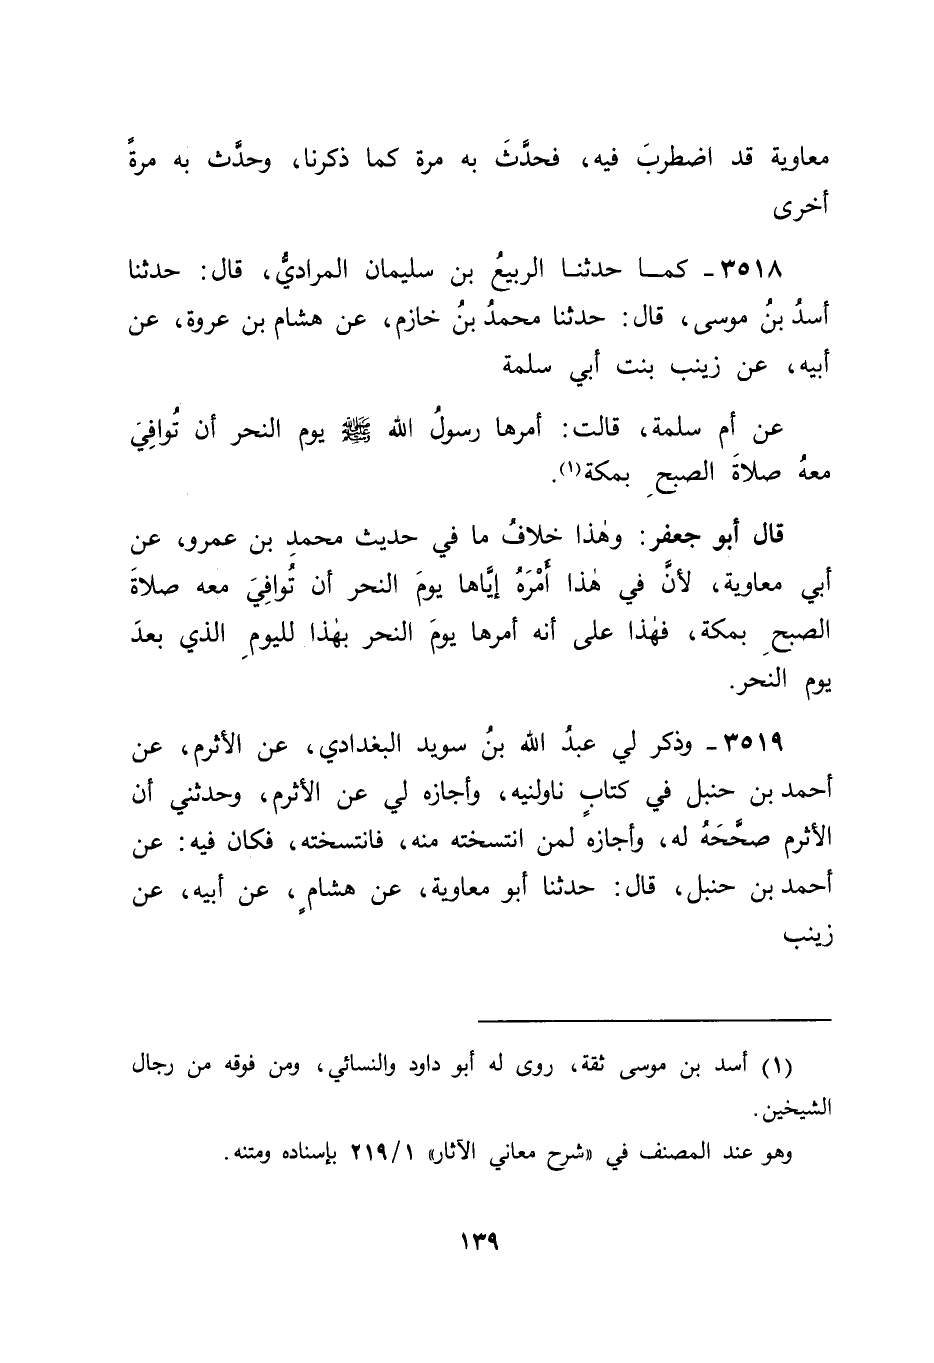 معاوية قد اضطربَ فيه، فحدَّثَ به مرة كما ذكرنا، وحدَّث به مرةً
أخرى
٣٥١٨ - كمـا حدثنـا الربيعُ بن سليمان المراديُّ، قال: حدثنا
أسدُ بنُ موسى، قال: حدثنا محمدُ بنُ خازم، عن هشام بن عروة، عن
أبيه، عن زينب بنت أبي سلمة
عن أم سلمة، قالت: أمرها رسولُ الله ﷺ يوم النحر أن تُوافِيَ
معهُ صلاةَ الصبحِ بمكة(١).
قال أبو جعفر: وهٰذا خلافُ ما في حديث محمدِ بن عمرو، عن
أبي معاوية، لأنَّ في هٰذا أَمْرَهُ إيَّاها يومَ النحر أن تُوافِيَ معه صلاةَ
الصبحِ بمكة، فهٰذا على أنه أمرها يومَ النحر بهٰذا لليومِ الذي بعدَ
يوم النحر.
٣٥١٩ - وذكر لي عبدُ الله بنُ سويد البغدادي، عن الأثرم، عن
أحمد بن حنبل في كتابٍ ناولنيه، وأجازه لي عن الأثرم، وحدثني أن
الأثرم صحَّحَهُ له، وأجازه لمن انتسخته منه، فانتسخته، فكان فيه: عن
أحمد بن حنبل، قال: حدثنا أبو معاوية، عن هشامٍ، عن أبيه، عن
زينب
(١) أسد بن موسى ثقة، روى له أبو داود والنسائي، ومن فوقه من رجال
الشيخين.
وهو عند المصنف في «شرح معاني الآثار» ٢١٩/١ بإسناده ومتنه.
١٣٩